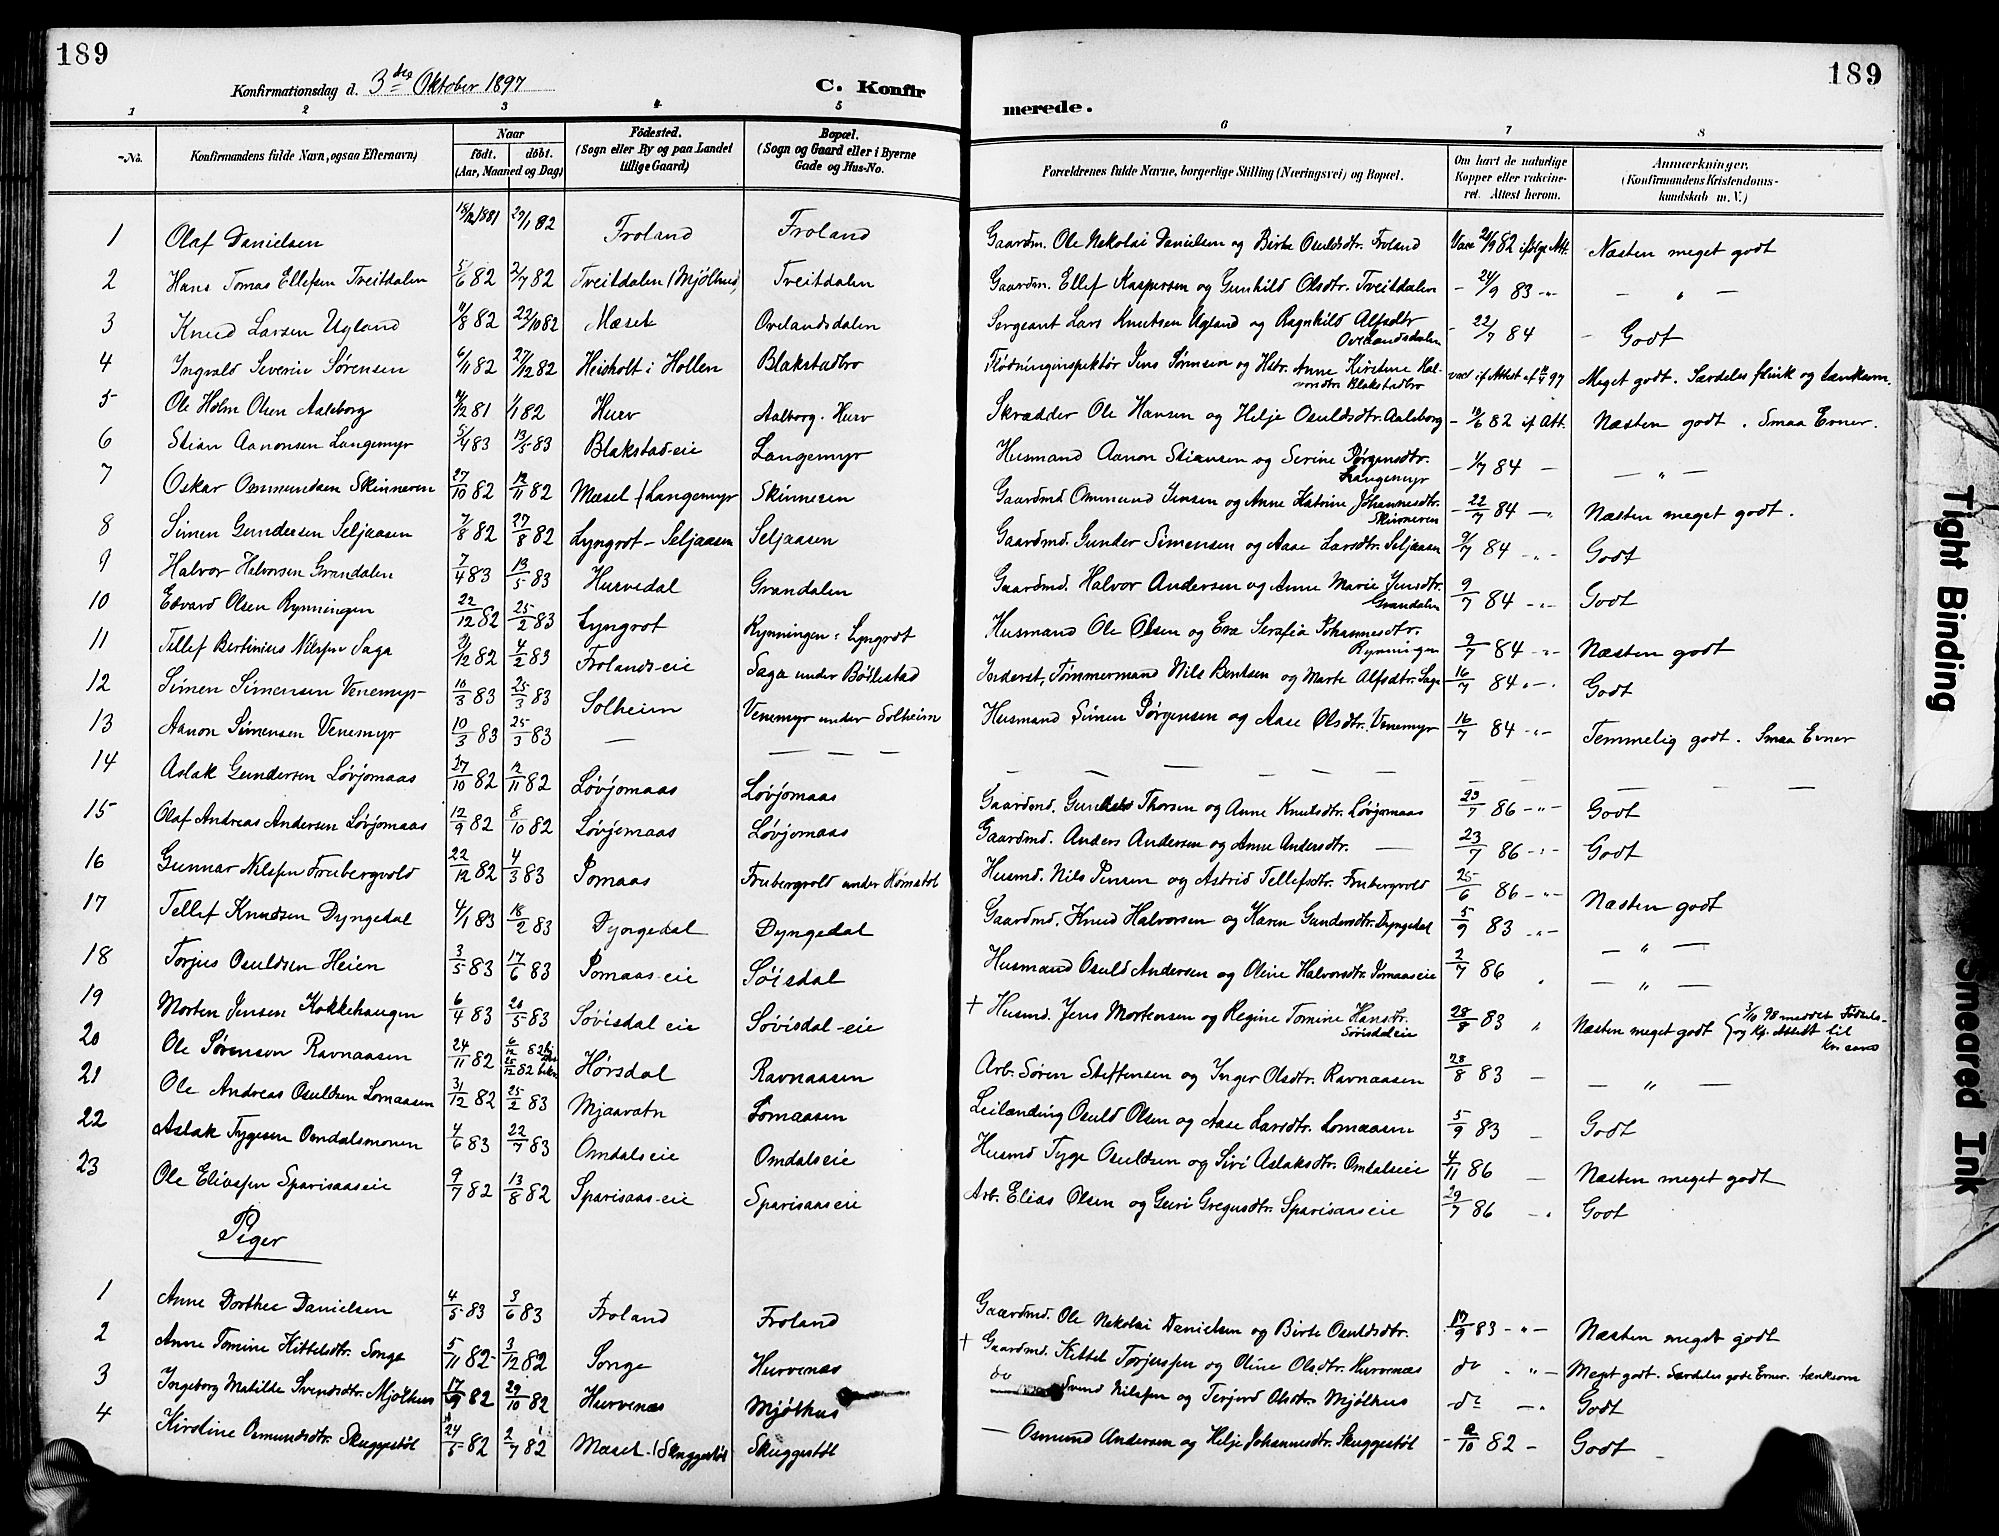 189
Konfirmationsdag d. 3die Oktober 1897
C. Konfir
merede.
189
1 2 3 4 5 6 7 8
No.
Konfirmandens fulde Navn, ogsaa Efternavn)
Naar
født. døbt.
(Aar, Maaned og Dag)
Fødested.
(Sogn eller By og paa Landet
tillige Gaard)
Bopæl.
(Sogn og Gaard eller i Byerne
Gade og Hus-No.
Forældrenes fulde Navne, borgerlige Stilling (Næringsvei) og Bopæl.
Om havt de naturlige
Kopper eller vakcine-
ret. Attest herom.
Anmærkninger.
(Konfirmandens Kristendoms-
kundskab m. V.)
1 Olaf Danielsen 18/12 1881 29/1 82 Froland Froland Gaardm. Ole Nekolai Danielsen og Birte Osuldsdtr. Froland Vacc 20/9 82 ifølge Att. Næsten meget godt
2 Hans Tomas Ellefsen Tveitdalen 5/6 82 2/7 82 Tveitdalen (Mjølhus) Tveitdalen Gaardm. Ellef Kaspersen og Gunhild Olsdtr. Tveitdalen - 24/9 83 -"- — " —
3 Knud Larsen Ugland 11/8 82 22/10 82 Mæsel Ovelandsdalen Sergeant Lars Knutsen Ugland og Ragnhild Alfsdtr Ovelandsdalen - 22/7 84 - Godt
4 Ingvald Severin Sørensen 6/11 82 27/12 82 Heisholt i Hollen Blakstadbro Flødninginspektør Jens Sørensen og Hstr. Anne Kirstine Halvorsdtr Blakstadbro vacc if Attest af 97 Meget godt. Særdeles flink og tænksom.
5 Ole Holm Olsen Aalsborg 12 81 1/1 82 Hurv Aalborg. Hurv Skrædder Ole Hansen og Helje Osuldsdtr. Aalsborg - 19/6 82 if Att. Næsten godt. Smaa Evner.
6 Stian Aanonsen Langemyr 5/4 83 13/5 83 Blakstad-eie Langemyr Husmand Aanon Stiansen og Serine Jørgensdtr. Langemyr - 1/7 84 - — " —
7 Oskar Ommundsen Skinneren 27/10 82 12/11 82 Mæsel / Langemyr Skinneren Gaardmd Ommund Jensen og Anne Katrine Johannesdtr. Skinneren - 22/7 84 - Næsten meget godt.
8 Simen Gundersen Seljaasen 7/8 82 27/8 82 Lyngrot - Seljaasen Seljaasen Gaardmd. Gunder Simensen og Aase Larsdtr. Seljaasen 9/7 84 -"- Godt
9 Halvor Halvorsen Grandalen 7/4 83 13/5 83 Hurvedal Grandalen Gaardmd. Halvor Andersen og Anne Marie Jensdtr. Grandalen 9/7 84 -"- Godt
10 Edvard Olsen Rynningen 22/12 82 25/2 83 Lyngrot Rynningen i Lyngrot Husmand Ole Olsen og Eva Serafia Johannesdtr. Rynningen 9/7 84 -"- Næsten godt
11 Tellef Bertinius Nilsen Saga 21/12 82 4/2 83 Frolands-eie Saga under Bøilestad Inderst, Tømmermand Nils Bentsen og Marte Alfsdtr. Saga 16/7 84 "- Godt
12 Simen Simensen Venemyr 10/3 83 25/3 83 Solheim Venemyr under Solheim Husmand Simen Jørgensen og Aase Olsdtr. Venemyr 16/7 84 -"- Temmelig godt. Smaa Evner
13 Aanon Simensen Venemyr 10/3 83 25/3 83 — — — — — — — — — — — — — — —
14 Aslak Gundersen Løvjomaas 27/10 82 12/11 82 Løvjomaas Løvjomaas Gaardmd. Gunder Thorsen og Anne Knutsdtr. Løvjomaas 23/7 86 -"- Godt
15 Olaf Andreas Andersen Løvjomaas 12/9 82 8/10 82 Løvjomaas Løvjomaas Gaardmd. Anders Andersen og Anne Andersdtr. — 23/7 86 -"- Godt
16 Gunnar Nilsen Frubergvold 22/12 82 4/3 83 Jomaas Frubergvold under Hømstøl Husmd. Nils Jensen og Astrid Tellefsdtr. Frubergvold 25/6 86 -"- Næsten godt
17 Tellef Knudsen Dyngedal 4/1 83 18/2 83 Dyngedal Dyngedal Gaardmd. Knud Halvorsen og Karen Gundersdtr. Dyngedal 5/9 83 -"- — " —
18 Torjus Osuldsen Heien 3/5 83 17/6 83 Jomaas-eie Søisdal Husmand Osuld Andersen og Oline Halvorsdtr. Jomaaseie 2/7 86 " — " —
19 Morten Jensen Kokkehaugen 6/4 83 20/5 83 Søvisdal eie Søvisdal-eie + Husmd. Jens Mortensen og Regine Tomine Hansdtr. Søvisdaleie 28/8 83 " Næsten meget godt 98 meddt Fødsels- og Kf. Attest til
20 Ole Sørenson Ravnaasen 24/11 82 6/12 82 25/12 82 Hørsdal Ravnaasen Arb. Søren Steffensen og Inger Olsdtr. Ravnaasen 28/8 83 — — " —
21 Ole Andreas Osuldsen Lomaasen 31/12 82 25/2 83 Mjaavatn Lomaasen Leilænding Osuld Olsen og Aase Larsdtr. Lomaasen 5/9 83 — Godt
22 Aslak Tygesen Omdalsmonen 4/6 83 22/7 83 Omdalseie Omdalseie Husmd Tyge Osuldsen og Siri Aslaksdtr. Omdalseie 4/11 86 — Næsten meget godt
23 Ole Eliassen Sparisaaseie 9/7 82 13/8 82 Sparisaas-eie Sparisaaseie Arb. Elias Olsen og Guri Gregusdtr. Sparisaaseie 29/7 86 -" Godt
Piger
1 Anne Dorthea Danielsen 4/5 83 3/6 83 Froland Froland Gaardmd. Ole Nekolai Danielsen og Birte Osuldsdtr. 17/9 83 -"- Næsten meget godt
2 Anne Tomine Kittelsdtr. Songe 5/11 82 3/12 82 Songe Hurvenæs + Gaardmd. Kittel Torjussen og Oline Olsdtr. Hurvenæs do "- Meget godt. Særdeles gode Evner. tænksom
3 Ingeborg Matilde Svendsdtr. Mjølhus 17/9 82 29/10 82 Hurvenæs Mjølhus do Svend Nilsen og Terjerd Olsdtr. Mjølhus do -" Godt
4 Kirstine Osmundsdtr. Skuggestøl 24/5 82 2/7 82 Mæsel (Skuggestøl Skuggestøl — Osmund Andersen og Helje Johannesdtr. Skuggestøl - 2/10 82 - Godt
Tight Binding
Smeared Ink